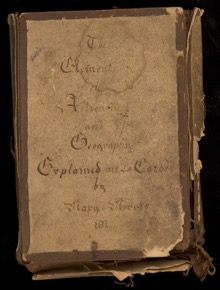 The
Element
of
Astronomy
and
Geography
Explained on Cards
by
Mary Moore